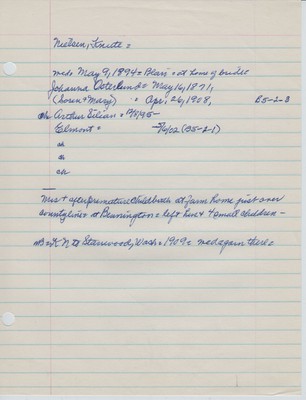 Nielsen, Knute =
med. May 9, 1894 = Blair = at home of bride
Johanna Osterlund = May 16, 1871,
(Soren + Mary) = Apr. 26, 1908, B5-2-B
ch. Arthur Silian = 1895 -
Elmont = 7/6/02 (B5-2-1)
ch
ch
ch
Mrs + after premature childbirth at farm home just over
county line at Bennington = left him + 4 small children -
K N to Stanwood, Wash = 1909 = med again there =